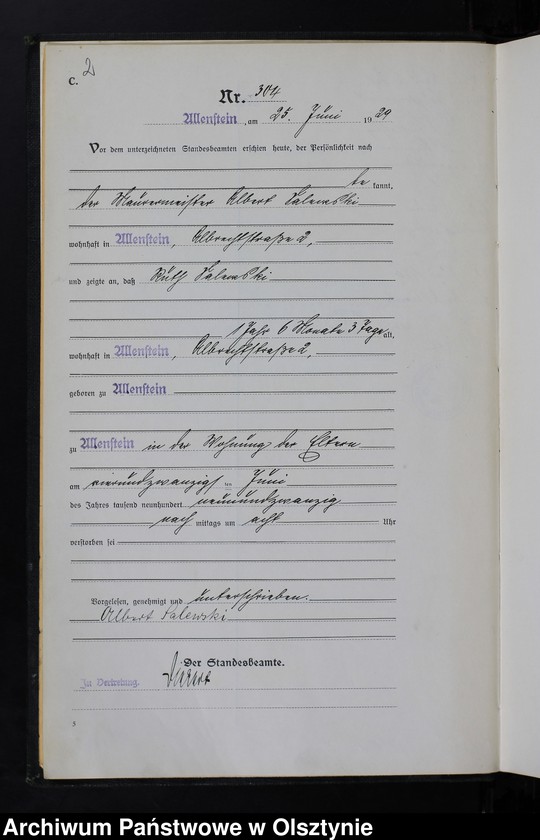 C. 2
Nr. 304
Allenstein, am 25. Juni 1929
Vor dem unterzeichneten Standesbeamten erschien heute, der Persönlichkeit nach
be kannt,
der Maurermeister Albert Salewski
wohnhaft in Allenstein, Albrechtstraße 2,
und zeigte an, daß Ruth Salewski
1 Jahr 6 Monate 3 Tage alt,
wohnhaft in Allenstein, Albrechtstraße 2,
geboren zu Allenstein
zu Allenstein in der Wohnung der Eltern
am vierundzwanzigsten Juni
des Jahres tausend neunhundert neunundzwanzig
nach mittags um acht Uhr
verstorben sei
Vorgelesen, genehmigt und unterschrieben.
Albert Salewski
Der Standesbeamte.
In Vertretung.
5
Archiwum Państwowe w Olsztynie